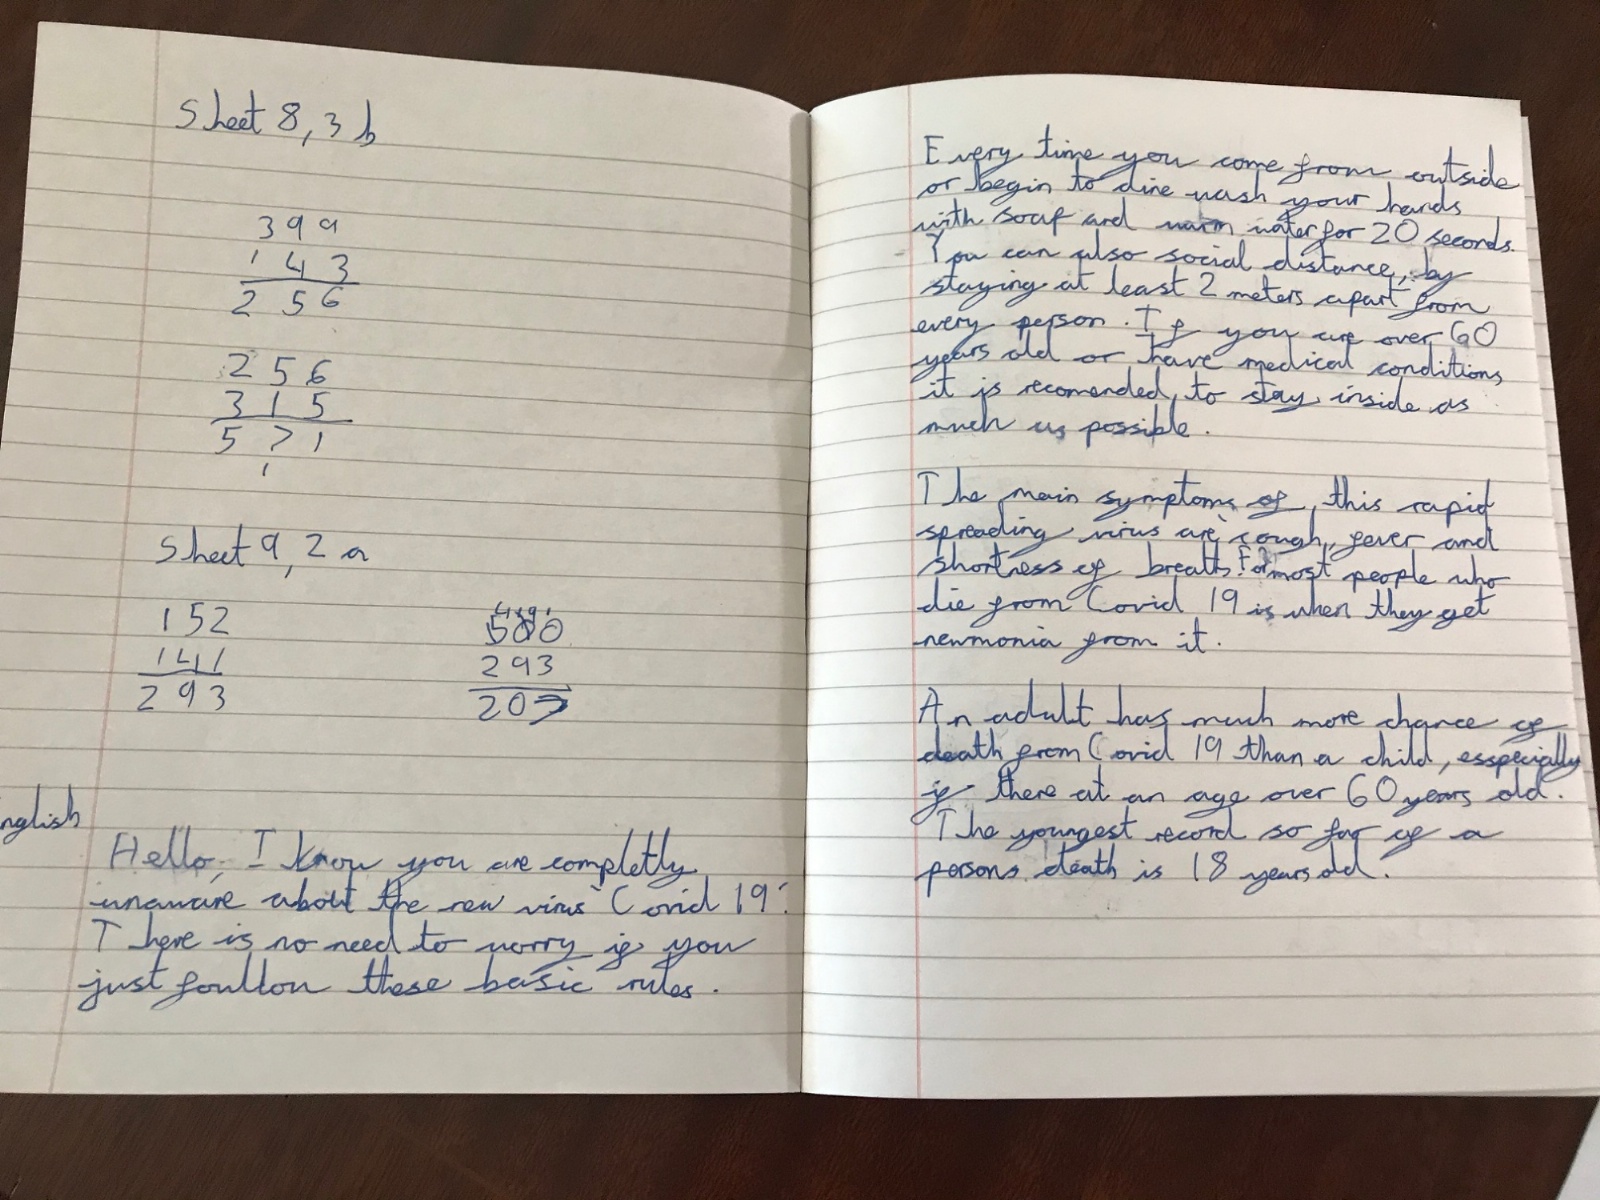 Sheet 8, 3 b
399
143
256
256
315
571
1
Sheet 9, 2 a
152
141
293
4 9 1
500
293
207
nglish
Hello, I know you are completly
unaware about the new virus 'Covid 19'.
There is no need to worry if you
just foullow these basic rules.
Every time you come from outside
or begin to dine wash your hands
with soap and warm water for 20 seconds.
You can also social distance, by
staying at least 2 meters apart from
every person. If you are over 60
years old or have medical conditions
it is recomended, to stay inside as
much as possible.
The main symptoms of this rapid
spreading virus are cough, fever and
shortness of breath. For most people who
die from Covid 19 is when they get
newmonia from it.
An adult has much more chance of
death from Covid 19 than a child, esspecially
if there at an age over 60 years old.
The youngest record so far of a
persons death is 18 years old.